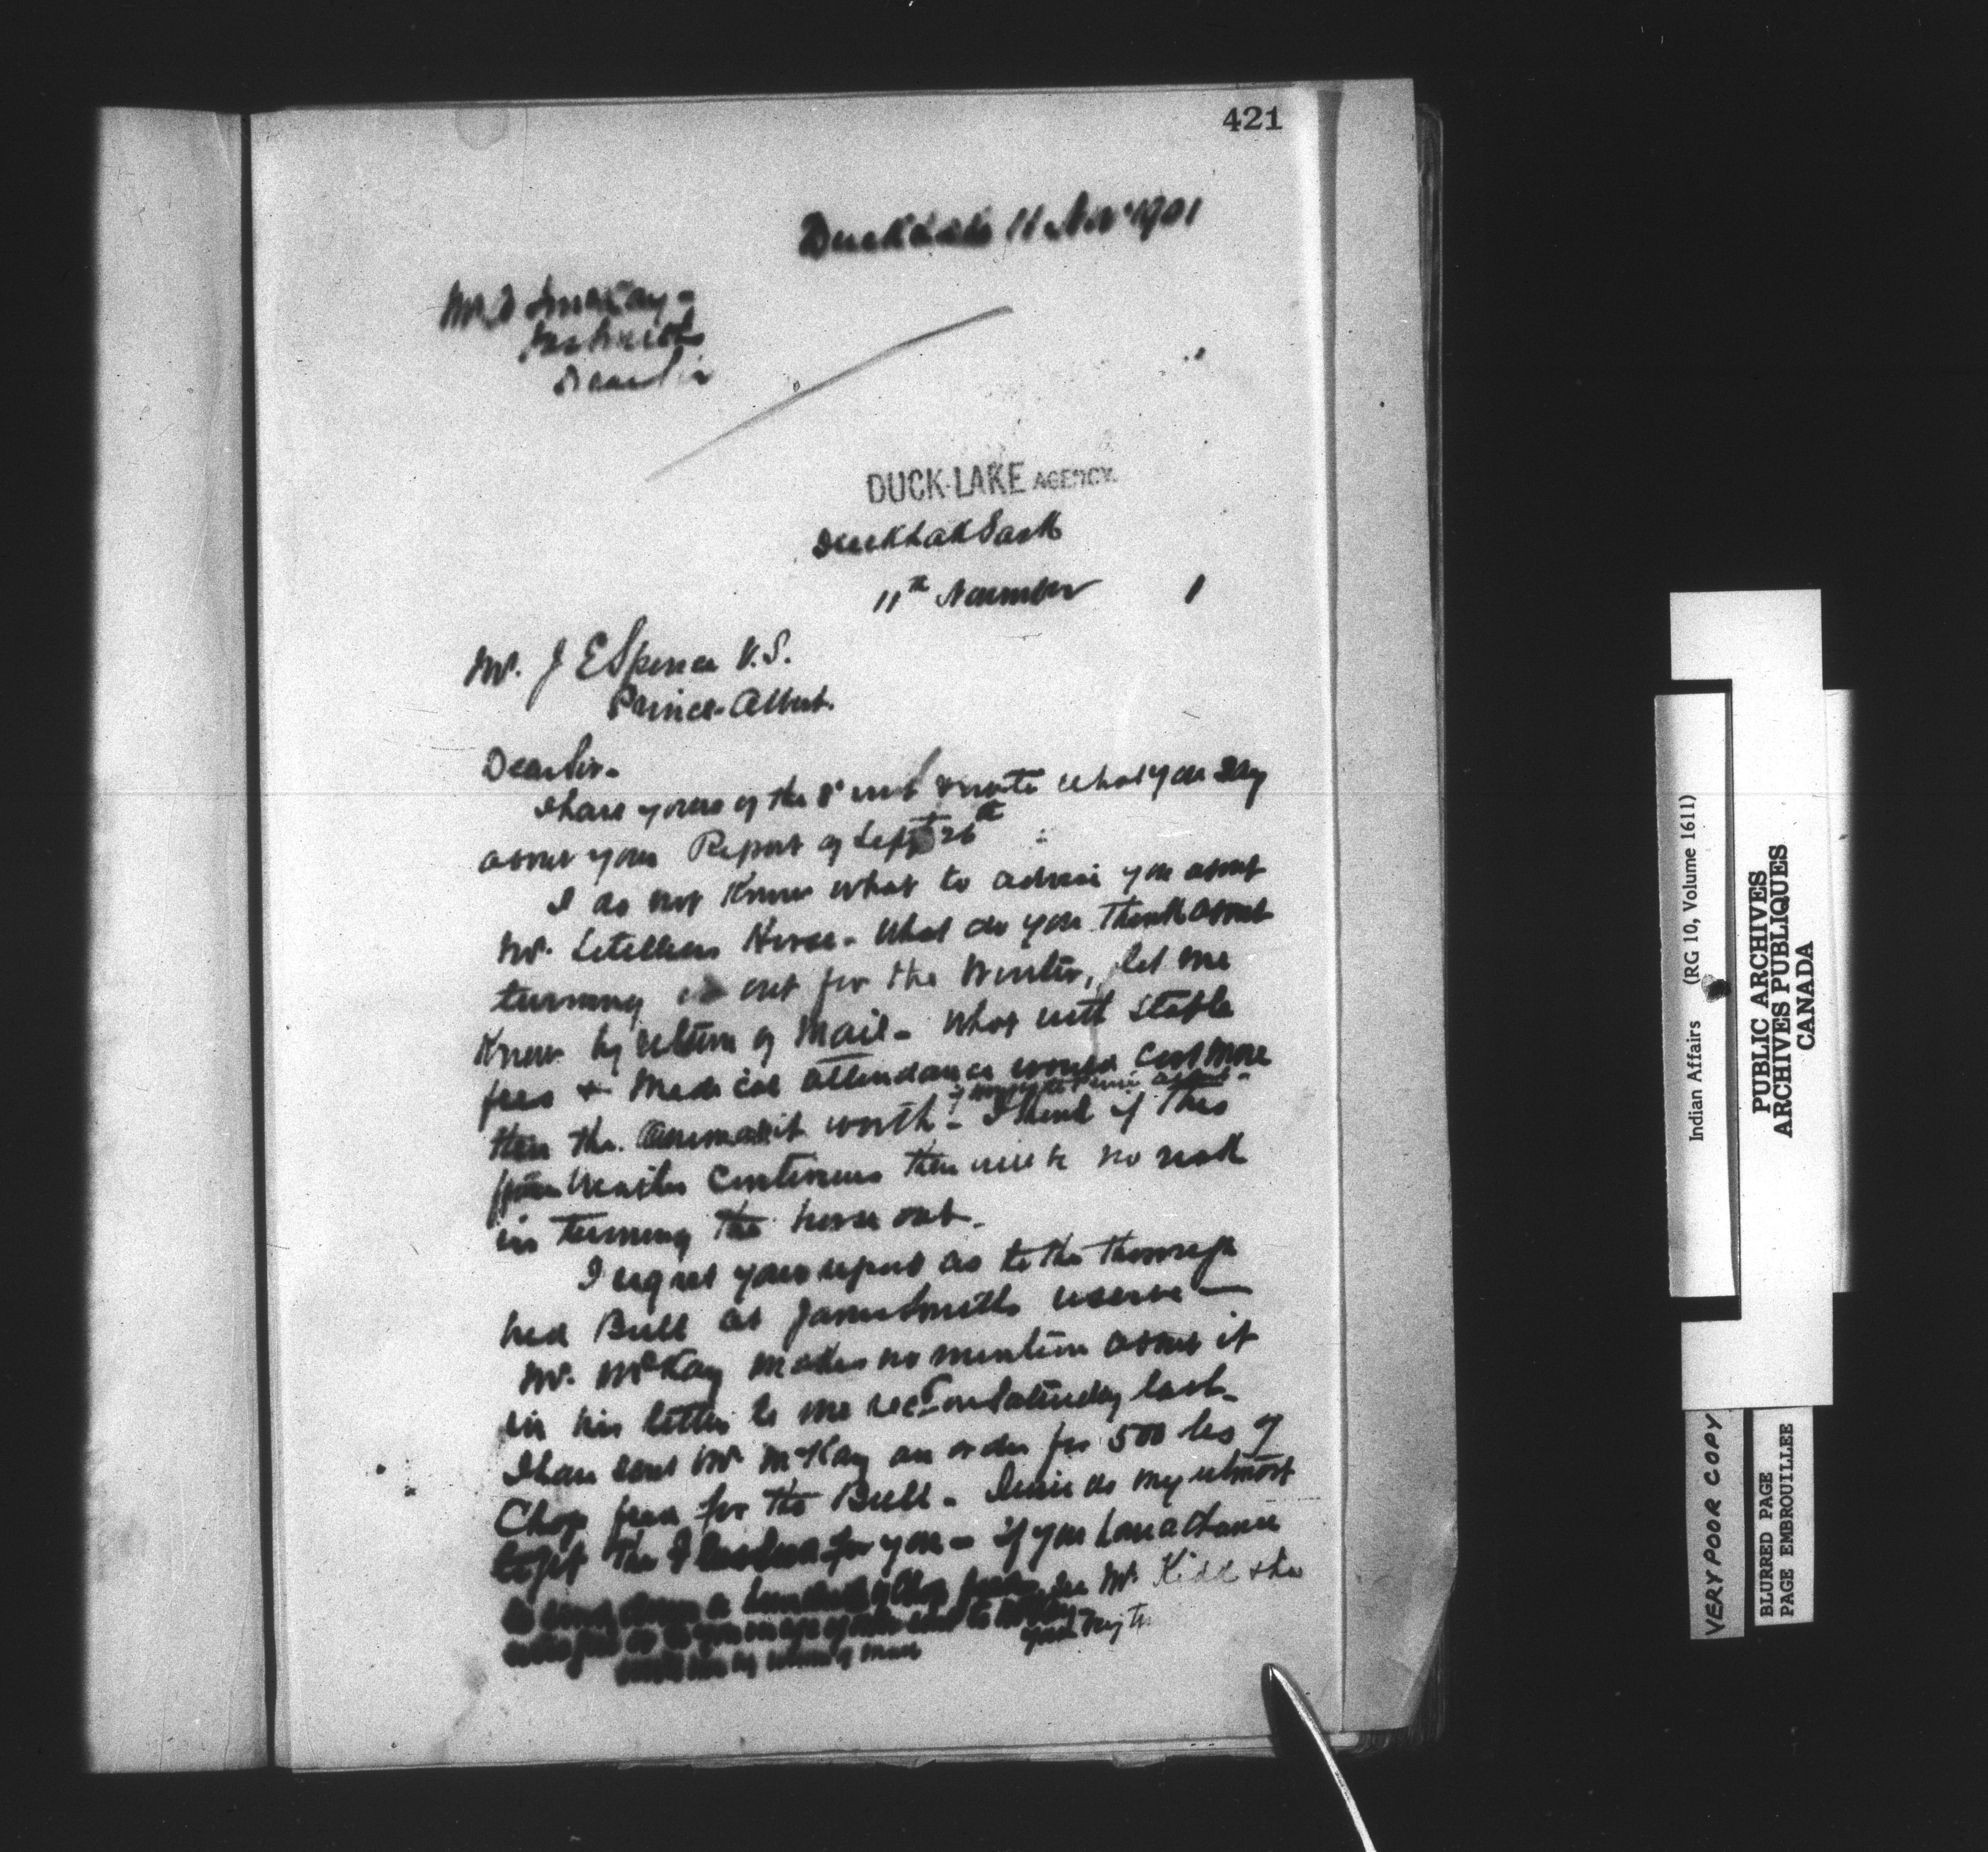 421
Duck Lake 11 Nov 1901
Mr McKay -
Dear Sir
DUCK-LAKE AGENCY.
Duck Lake Sask
11th November 1
Mr. J E Spence V.S.
Prince-Albert.
Dear Sir-
I have yours of the 8 inst & note what you say
about your Report of Sept 26th
I do not know what to advise you about
Mr. Letelliers Horse - What do you think about
turning out for the Winter, let me
Know by return of Mail - What with stable
fees & Medical attendance would cost more
than the worth - I think if this
continues there will be no risk
in turning the horse out -
I regret your report as to the thorough
bred Bull at James Smiths reserve -
Mr. McKay makes no mention about it
in his letter to me recd on Saturday last -
I have sent Mr McKay an order for 500 lbs of
Chop feed for the Bull - I will do my utmost
to get the for you - if you have a chance
to send down a hundred of Chop feed see Mr. Kidd & he
by return of mail
Indian Affairs (RG 10, Volume 1611)
PUBLIC ARCHIVES
ARCHIVES PUBLIQUES
CANADA
VERY POOR COPY
BLURED PAGE
PAGE EMBROUILLEE